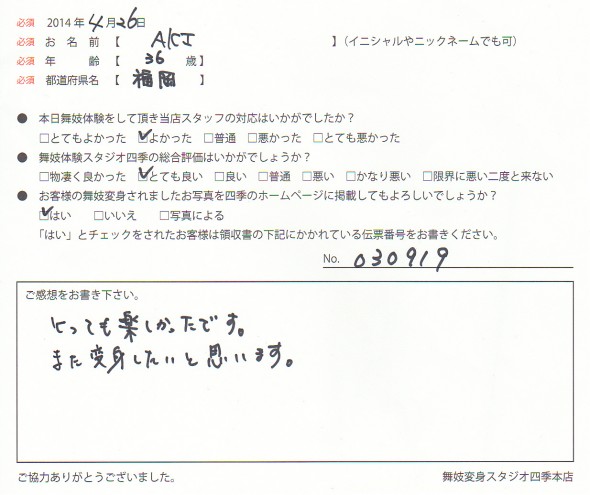 必須 2014年4月26日
必須 お名前【 AKI 】(イニシャルやニックネームでも可)
必須 年齢【 36 歳】
必須 都道府県名【 福岡 】
● 本日舞妓体験をして頂き当店スタッフの対応はいかがでしたか?
□とてもよかった ☑よかった □普通 □悪かった □とても悪かった
● 舞妓体験スタジオ四季の総合評価はいかがでしょうか?
□物凄く良かった ☑とても良い □良い □普通 □悪い □かなり悪い □限界に悪い二度と来ない
● お客様の舞妓変身されましたお写真を四季のホームページに掲載してもよろしいでしょうか?
☑はい □いいえ □写真による
「はい」とチェックをされたお客様は領収書の下記にかかれている伝票番号をお書きください。
No. 030919
ご感想をお書き下さい。
とっても楽しかったです。
また変身したいと思います。
ご協力ありがとうございました。 舞妓変身スタジオ四季本店